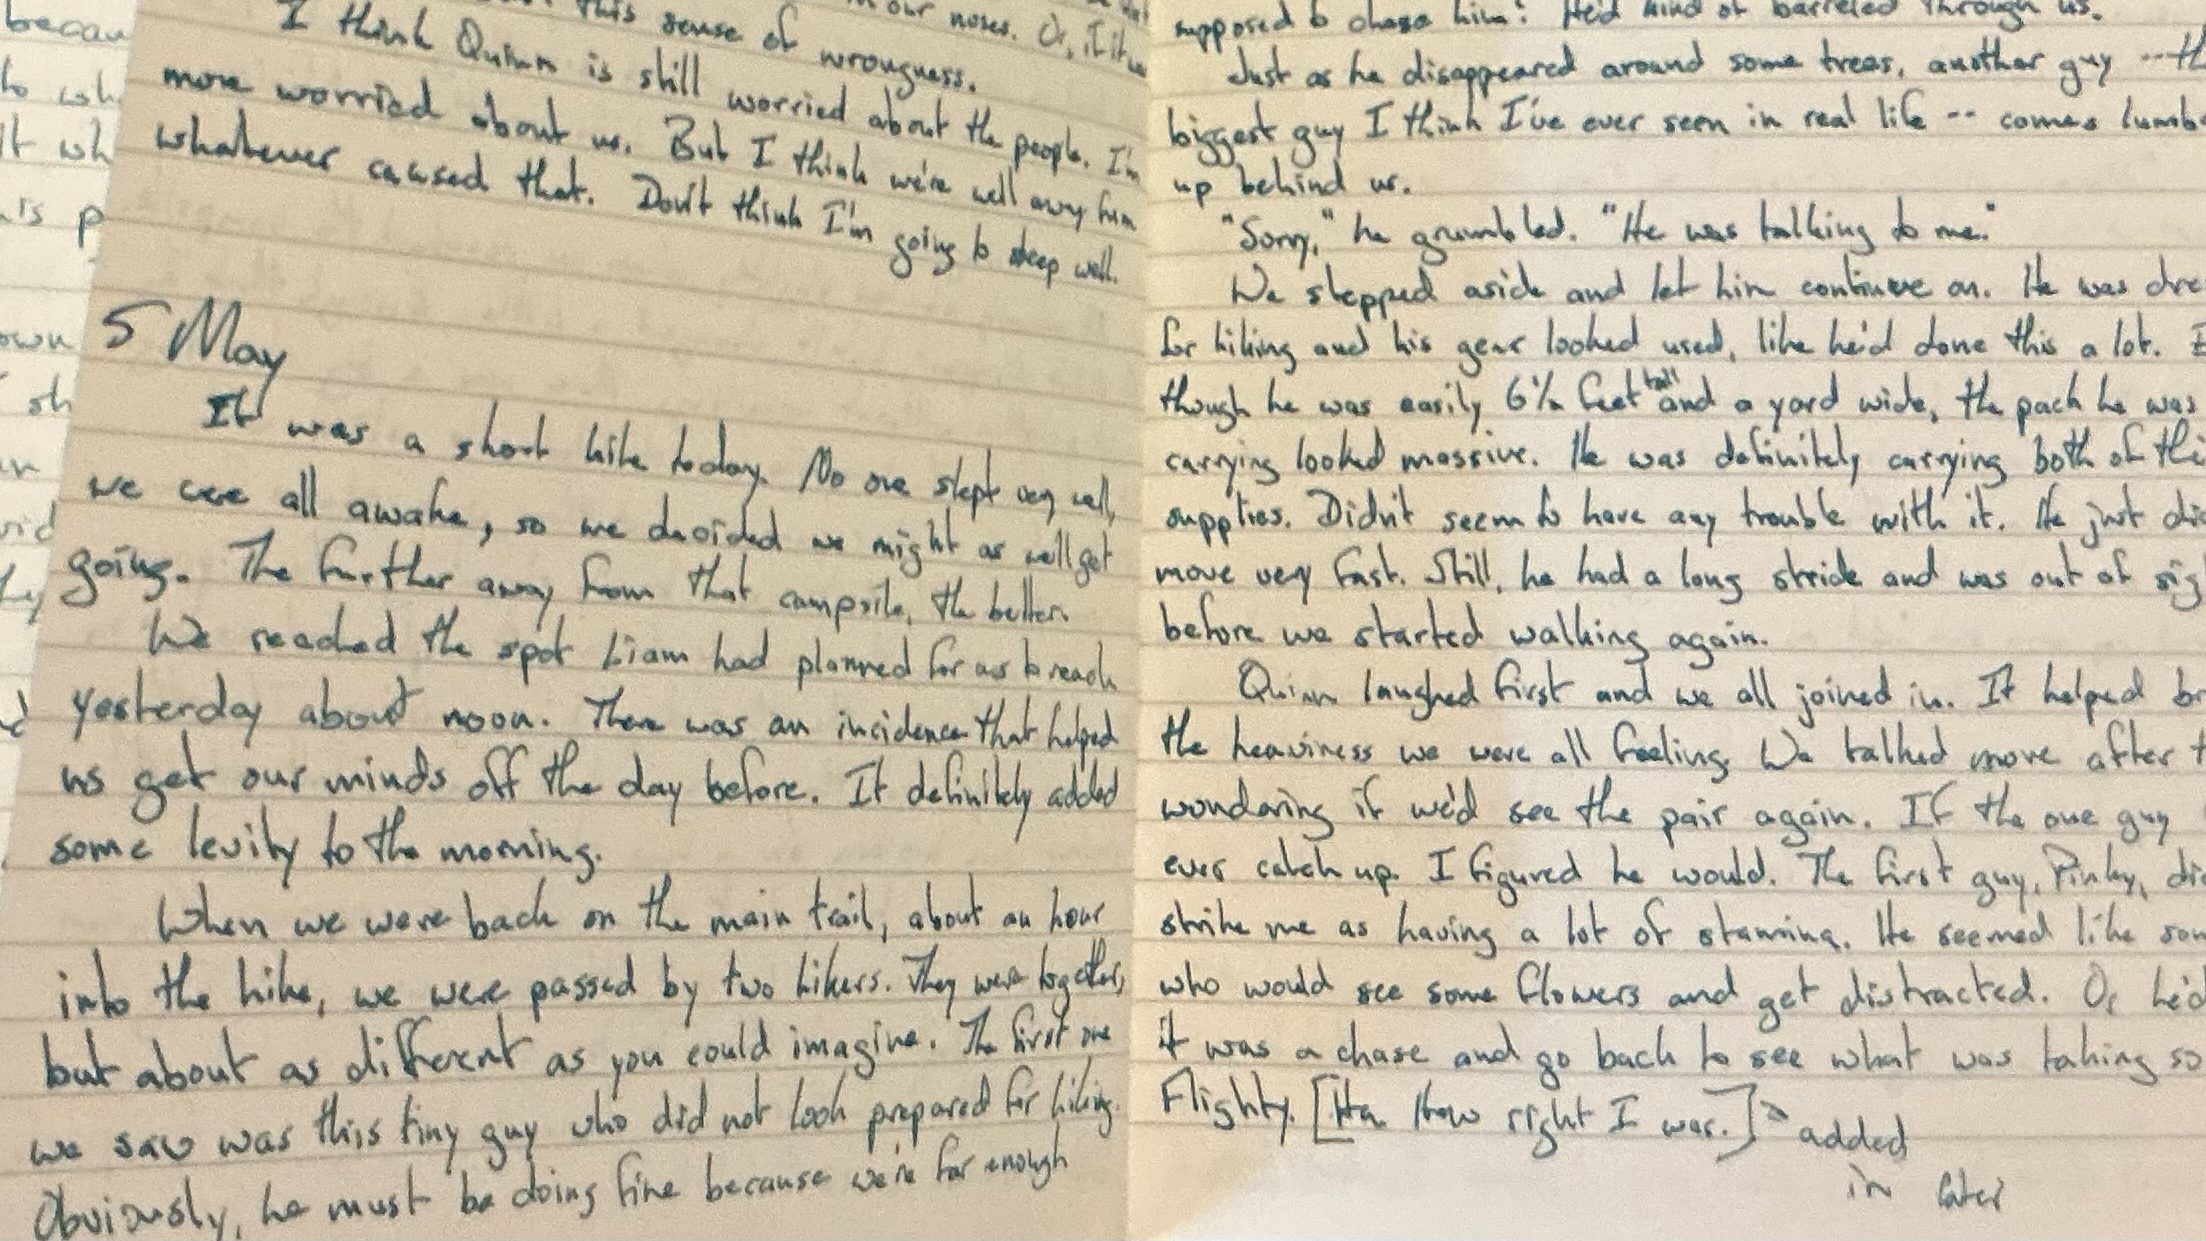 becau
to wh
it wh
is p
own
sh
this sense of wrongness.
in our noses. Or, if it
I think Quinn is still worried about the people. I'm
more worried about us. But I think we're well away from
whatever caused that. Don't think I'm going to sleep well.
5 May
It was a short hike today. No one slept very well,
we were all awake, so we decided we might as well get
going. The further away from that campsite, the better.
We reached the spot Liam had planned for us to reach
yesterday about noon. There was an incidence that helped
us get our minds off the day before. It definitely added
some levity to the morning.
When we were back on the main trail, about an hour
into the hike, we were passed by two hikers. They were together,
but about as different as you could imagine. The first one
we saw was this tiny guy who did not look prepared for hiking.
Obviously, he must be doing fine because we're far enough
supposed to chase him? He'd kind of barreled through us.
Just as he disappeared around some trees, another guy -- th
biggest guy I think I've ever seen in real life -- comes lumb
up behind us.
"Sorry," he grumbled. "He was talking to me."
We stepped aside and let him continue on. He was dre
for hiking and his gear looked used, like he'd done this a lot. E
though he was easily 6½ feet tall and a yard wide, the pack he was
carrying looked massive. He was definitely carrying both of thei
supplies. Didn't seem to have any trouble with it. He just did
move very fast. Still, he had a long stride and was out of sig
before we started walking again.
Quinn laughed first and we all joined in. It helped br
the heaviness we were all feeling. We talked more after t
wondering if we'd see the pair again. If the one guy
ever catch up. I figured he would. The first guy, Pinky, did
strike me as having a lot of stamina. He seemed like som
who would see some flowers and get distracted. Or he'd
it was a chase and go back to see what was taking so
Flighty. [Ha. How right I was.] added
in later